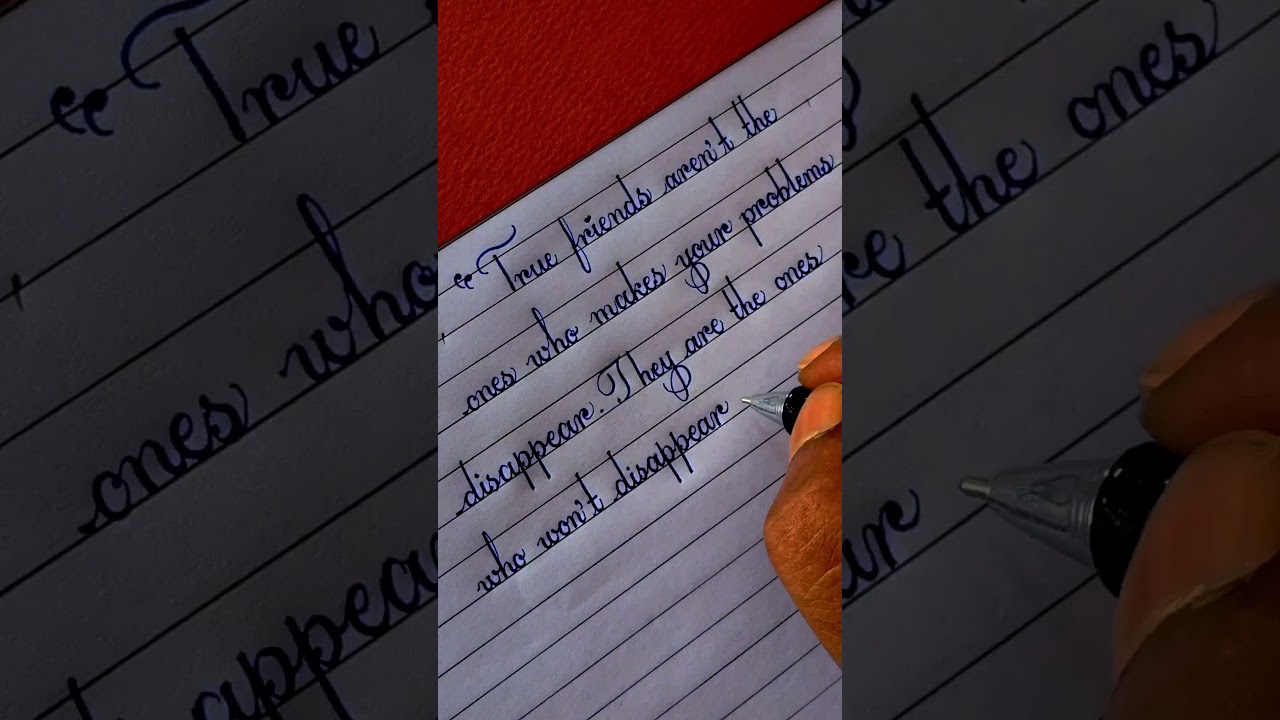 “True friends aren't the
ones who makes your problems
disappear. They are the ones
who won't disappear